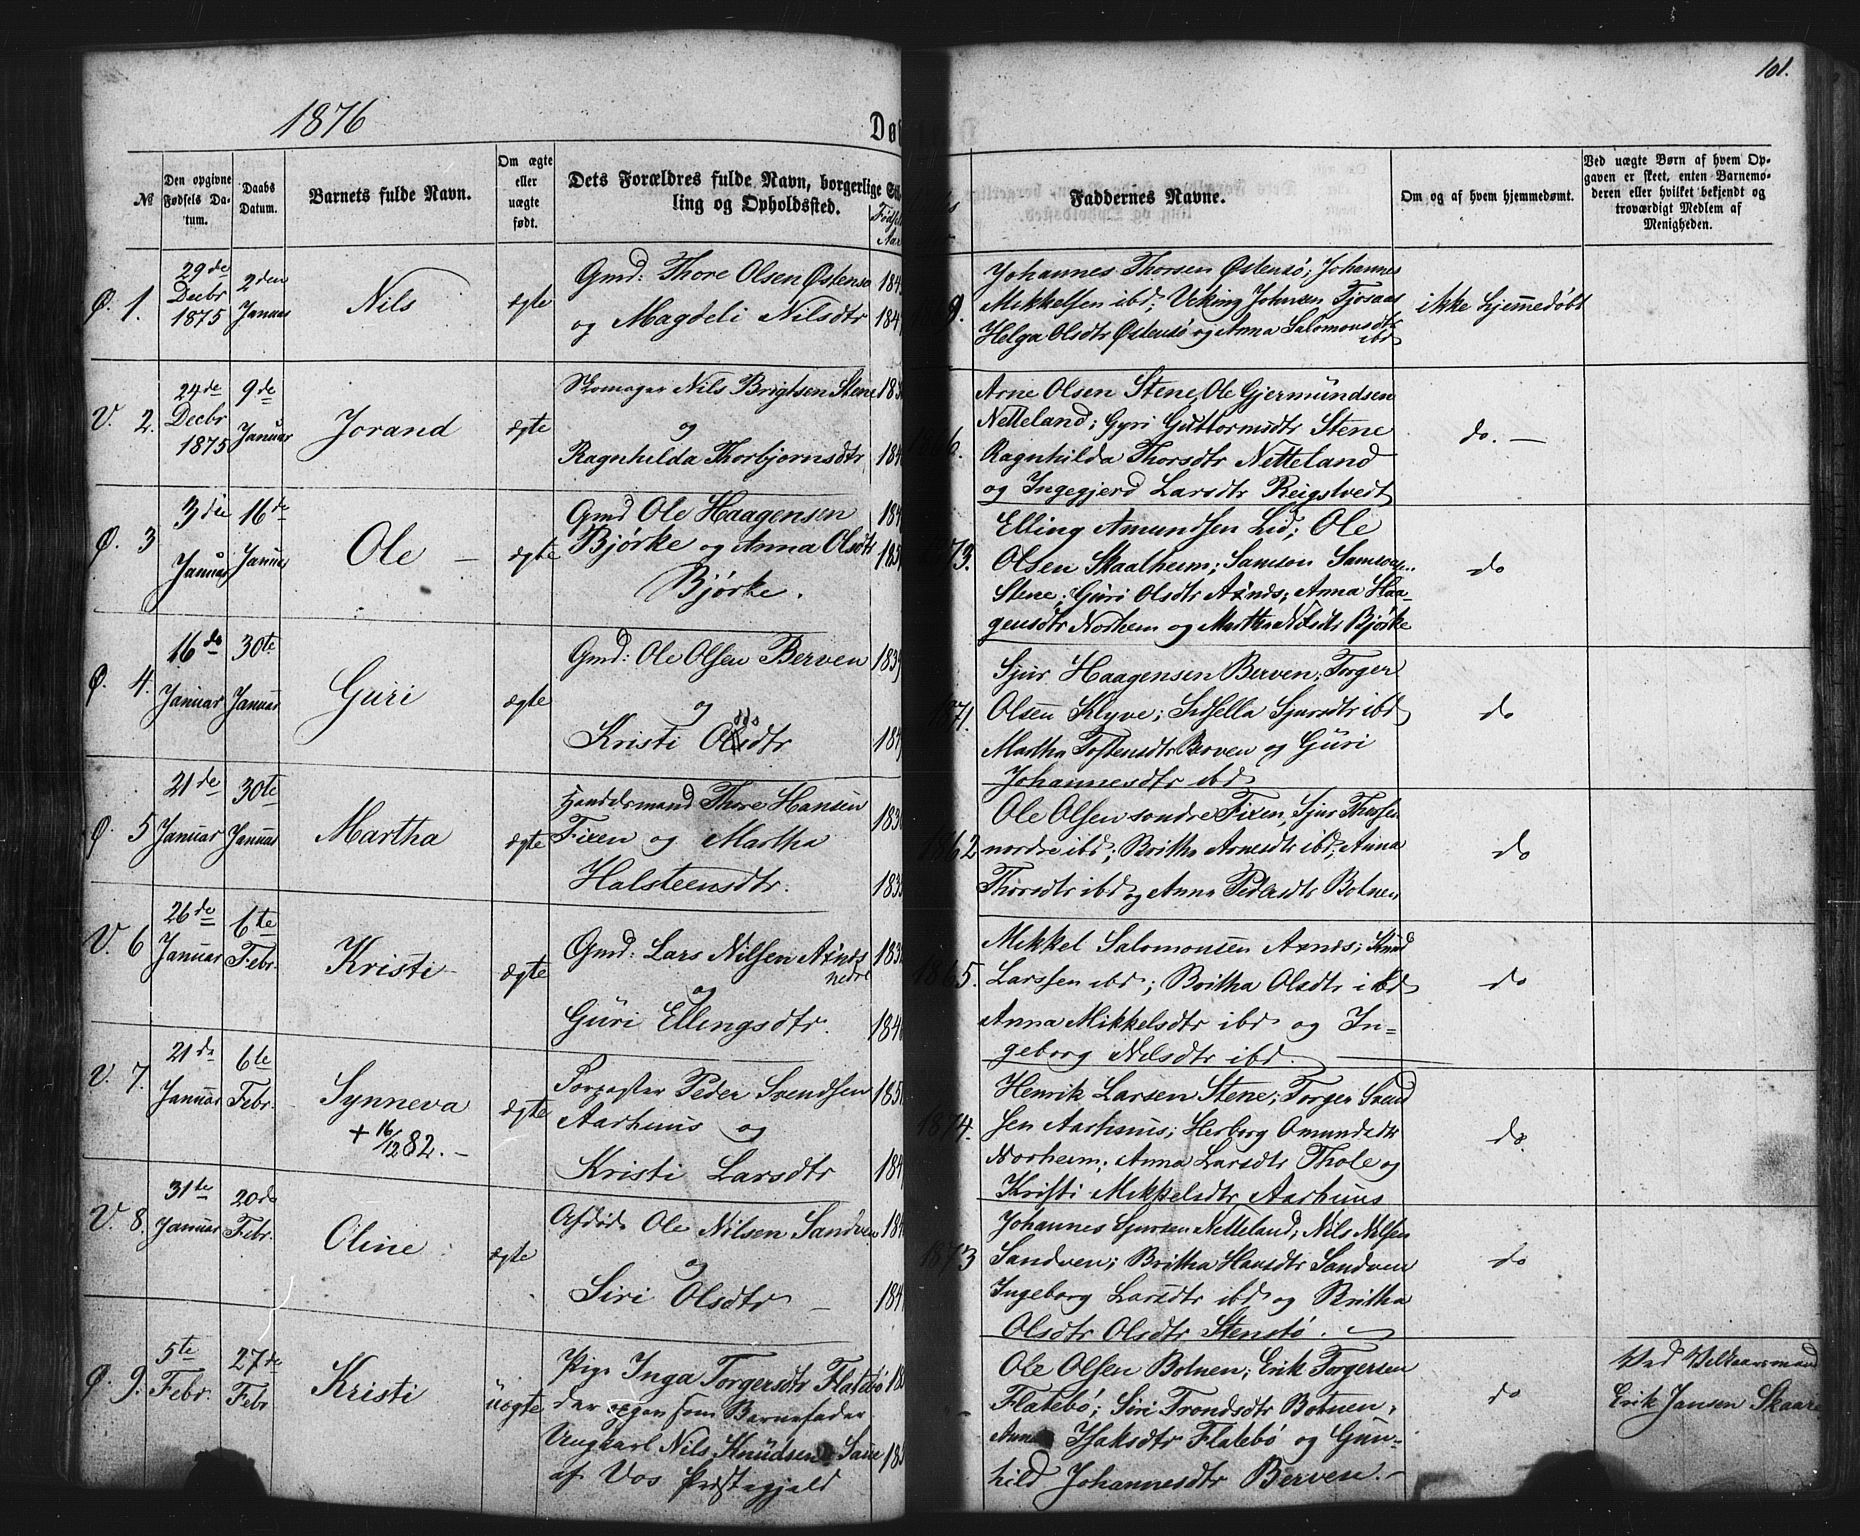 1876
Dø
101.
№
Den opgivne Fødsels Da-tum.
Daabs Datum.
Barnets fulde Navn.
Om ægte eller uægte født.
Dets Forældres fulde Navn, borgerlige Stil-ling og Opholdssted.
Fødsels Aar
Faddernes Navne.
Om og af hvem hjemmedøbt.
Ved uægte Børn af hvem Op-gaven er skeet, enten Barnemo-deren eller hvilket bekjendt og troværdigt Medlem af Menigheden.
Ø. 1.
29de Decbr 1875
2den Januar
Nils
ægte
Gmd: Thore Olsen Østensø
og Magdeli Nilsdtr
Johannes Thorsen Østensø; Johannes
Mikkelsen ibd; Veking Johnsen Tjosaas
Helga Olsdtr Østensø og Anna Salomonsdtr
ibd
ikke hjemmedøbt
V. 2.
24de Decbr 1875
9de Januar
Jorand
ægte
Skomager Nils Brigtsen Stene
og
Ragnhilda Thorbjørnsdtr
Arne Olsen Stene, Ole Gjermundsen
Netteland; Gyri Guttormsdtr Stene
Ragnhilda Thorsdtr Netteland
og Ingegjerd Larsdtr Reigstvedt
do. —
Ø. 3
3die Januar
16de Januar
Ole —
ægte
Gmd Ole Haagensen
Bjørke og Anna Olsdtr
Bjørke.
1873.
Elling Amundsen Lid; Ole
Olsen Skaalheim; Samson Samson..
Stene; Guri Olsdtr Axnes; Anna Haa-
gensdtr Norheim og Martha Nilsdtr Bjørke
do
Ø. 4.
16de Januar
30te Januar
Guri
ægte
Gmd: Ole Olsen Berven
og
Kristi Olsdtr
1871.
Sjur Haagensen Berven; Torger
Olsen Klyve; Sidsella Sjursdtr ibd
Martha Tostensdtr Berven og Guri
Johannesdtr ibd
do
Ø. 5
21de Januar
30te Januar
Martha
ægte
Handelsmand Thore Hansen
Fixen og Martha
Halsteensdtr.
1862
Ole Olsen søndre Fixen, Sjur Thorsen
nordre ibd; Britha Arnesdtr ibd; Anna
Thorsdtr ibd og Anna Pedersdtr Botnen
do
V. 6
26de Januar
6te Febr.
Kristi
ægte
Gmd: Lars Nilsen Axnes
nedre
og
Guri Ellingsdtr.
1865.
Mikkel Salomonsen Axnes; Knud
Larssen ibd; Britha Olsdtr ibd
Anna Mikkelsdtr ibd og In-
geborg Nilsdtr ibd.
do
V. 7.
21de Januar
6te Febr.
Synneva
+ 16/12 82. -
ægte
Forpagter Peder Svendsen
Aarhuus og
Kristi Larsdtr
1874.
Henrik Larsen Stene; Torger Svend
sen Aarhuus; Herborg Omundsdtr
Norheim; Anna Larsdtr Thole og
Kristi Mikkelsdtr Aarhuus
do
V. 8.
31te Januar
20de Febr.
Oline
ægte
Afdøde Ole Nilsen Sandven
og
Siri Olsdtr —
1873
Johannes Sjursen Netteland; Nils Nilsen
Sandven; Britha Hansdtr Sandven
Ingeborg Larsdtr ibd og Britha
Olsdtr Olsdtr Stenstø.
do
Ø. 9.
5te Febr.
27de Febr
Kristi
uægte
Pige Inga Torgersdtr Flatebø
der opgav som Barnefader
Ungkarl Nils Knudsen Saue
af Vos Præstegjeld
Ole Olsen Botnen; Erik Torgersen
Flatebø; Siri Trondsdtr Botnen,
Anna Isaksdtr Flatebø og Gun-
hild Johannesdtr Berven. -
do
Ved Velkaarsmand
Erik Jansen Skaare